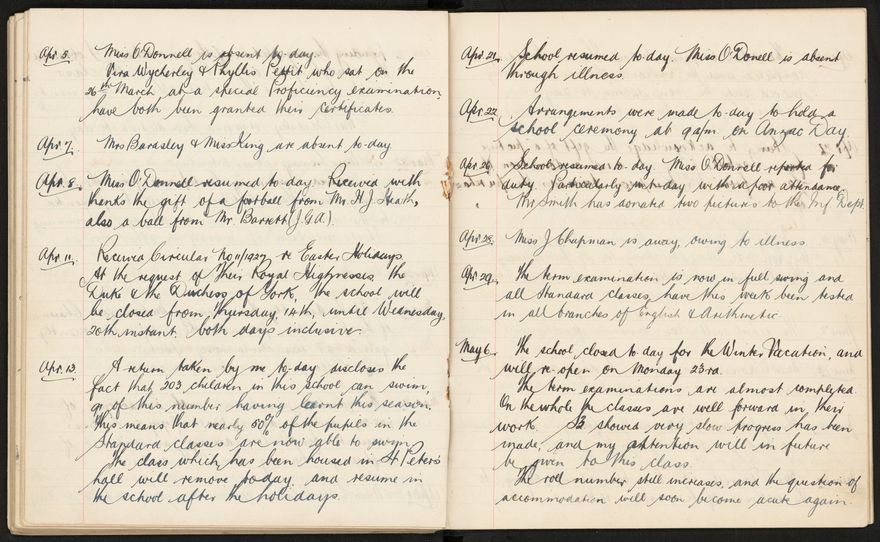 Apr. 5. Miss O'Donnell is absent to-day.
Vira Wycherley & Phyllis Pettit who sat on the
26th March at a special Proficiency examination,
have both been granted their certificates.
Apr. 7. Mrs Bardsley & Miss King are absent to-day
Apr. 8. Miss O'Donnell resumed to-day. Received with
thanks the gift of a football from Mr. H. J. Heath,
also a ball from Mr Barrett (J.G.A.).
Apr. 11. Received Circular No 11/1927 re Easter Holidays.
At the request of Their Royal Highnesses, the
Duke & the Duchess of York, the school will
be closed from Thursday, 14th, until Wednesday,
20th instant. both days inclusive.
Apr. 13. A return taken by me to-day discloses the
fact that 203 children in this school can swim,
91 of this number having learnt this season.
This means that nearly 50% of the pupils in the
Standard classes are now able to swim.
The class which has been housed in St Peter's
hall will remove to-day, and resume in
the school after the holidays.
Apr. 21. School resumed to-day. Miss O'Donell is absent
through illness.
Apr. 22. Arrangements were made to-day to hold a
school ceremony at 9 a.m. on Anzac Day
Apr. 26. School resumed to-day Miss O'Donnell reported for
duty. Particularly wet day with a poor attendance.
Mr. Smith has donated two pictures to the Inf. Dept.
Apr. 28. Miss J Chapman is away, owing to illness.
Apr. 29. The term examination is now in full swing and
all Standard classes, have this week been tested
in all branches of English & Arithmetic
May 6. The school closed to-day for the Winter Vacation, and
will re-open on Monday 23rd.
The term examinations are almost completed.
On the whole the classes are well forward in their
work. S3 showed very slow progress has been
made, and my attention will in future
be given to this class.
The roll number still increases, and the question of
accommodation will soon become acute again.